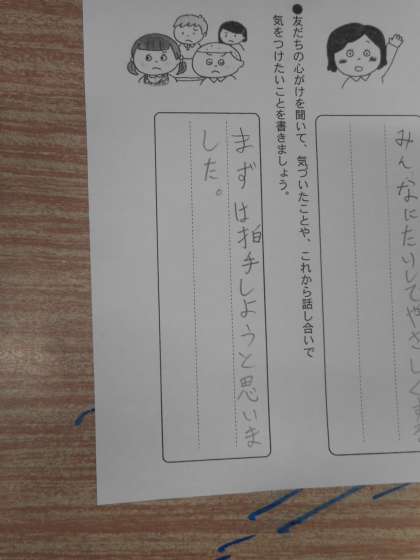 みんなにたいしてやさしく
●友だちの心がけを聞いて、気づいたことや、これから話し合いで
気をつけたいことを書きましょう。
まずは拍手しようと思いま
した。